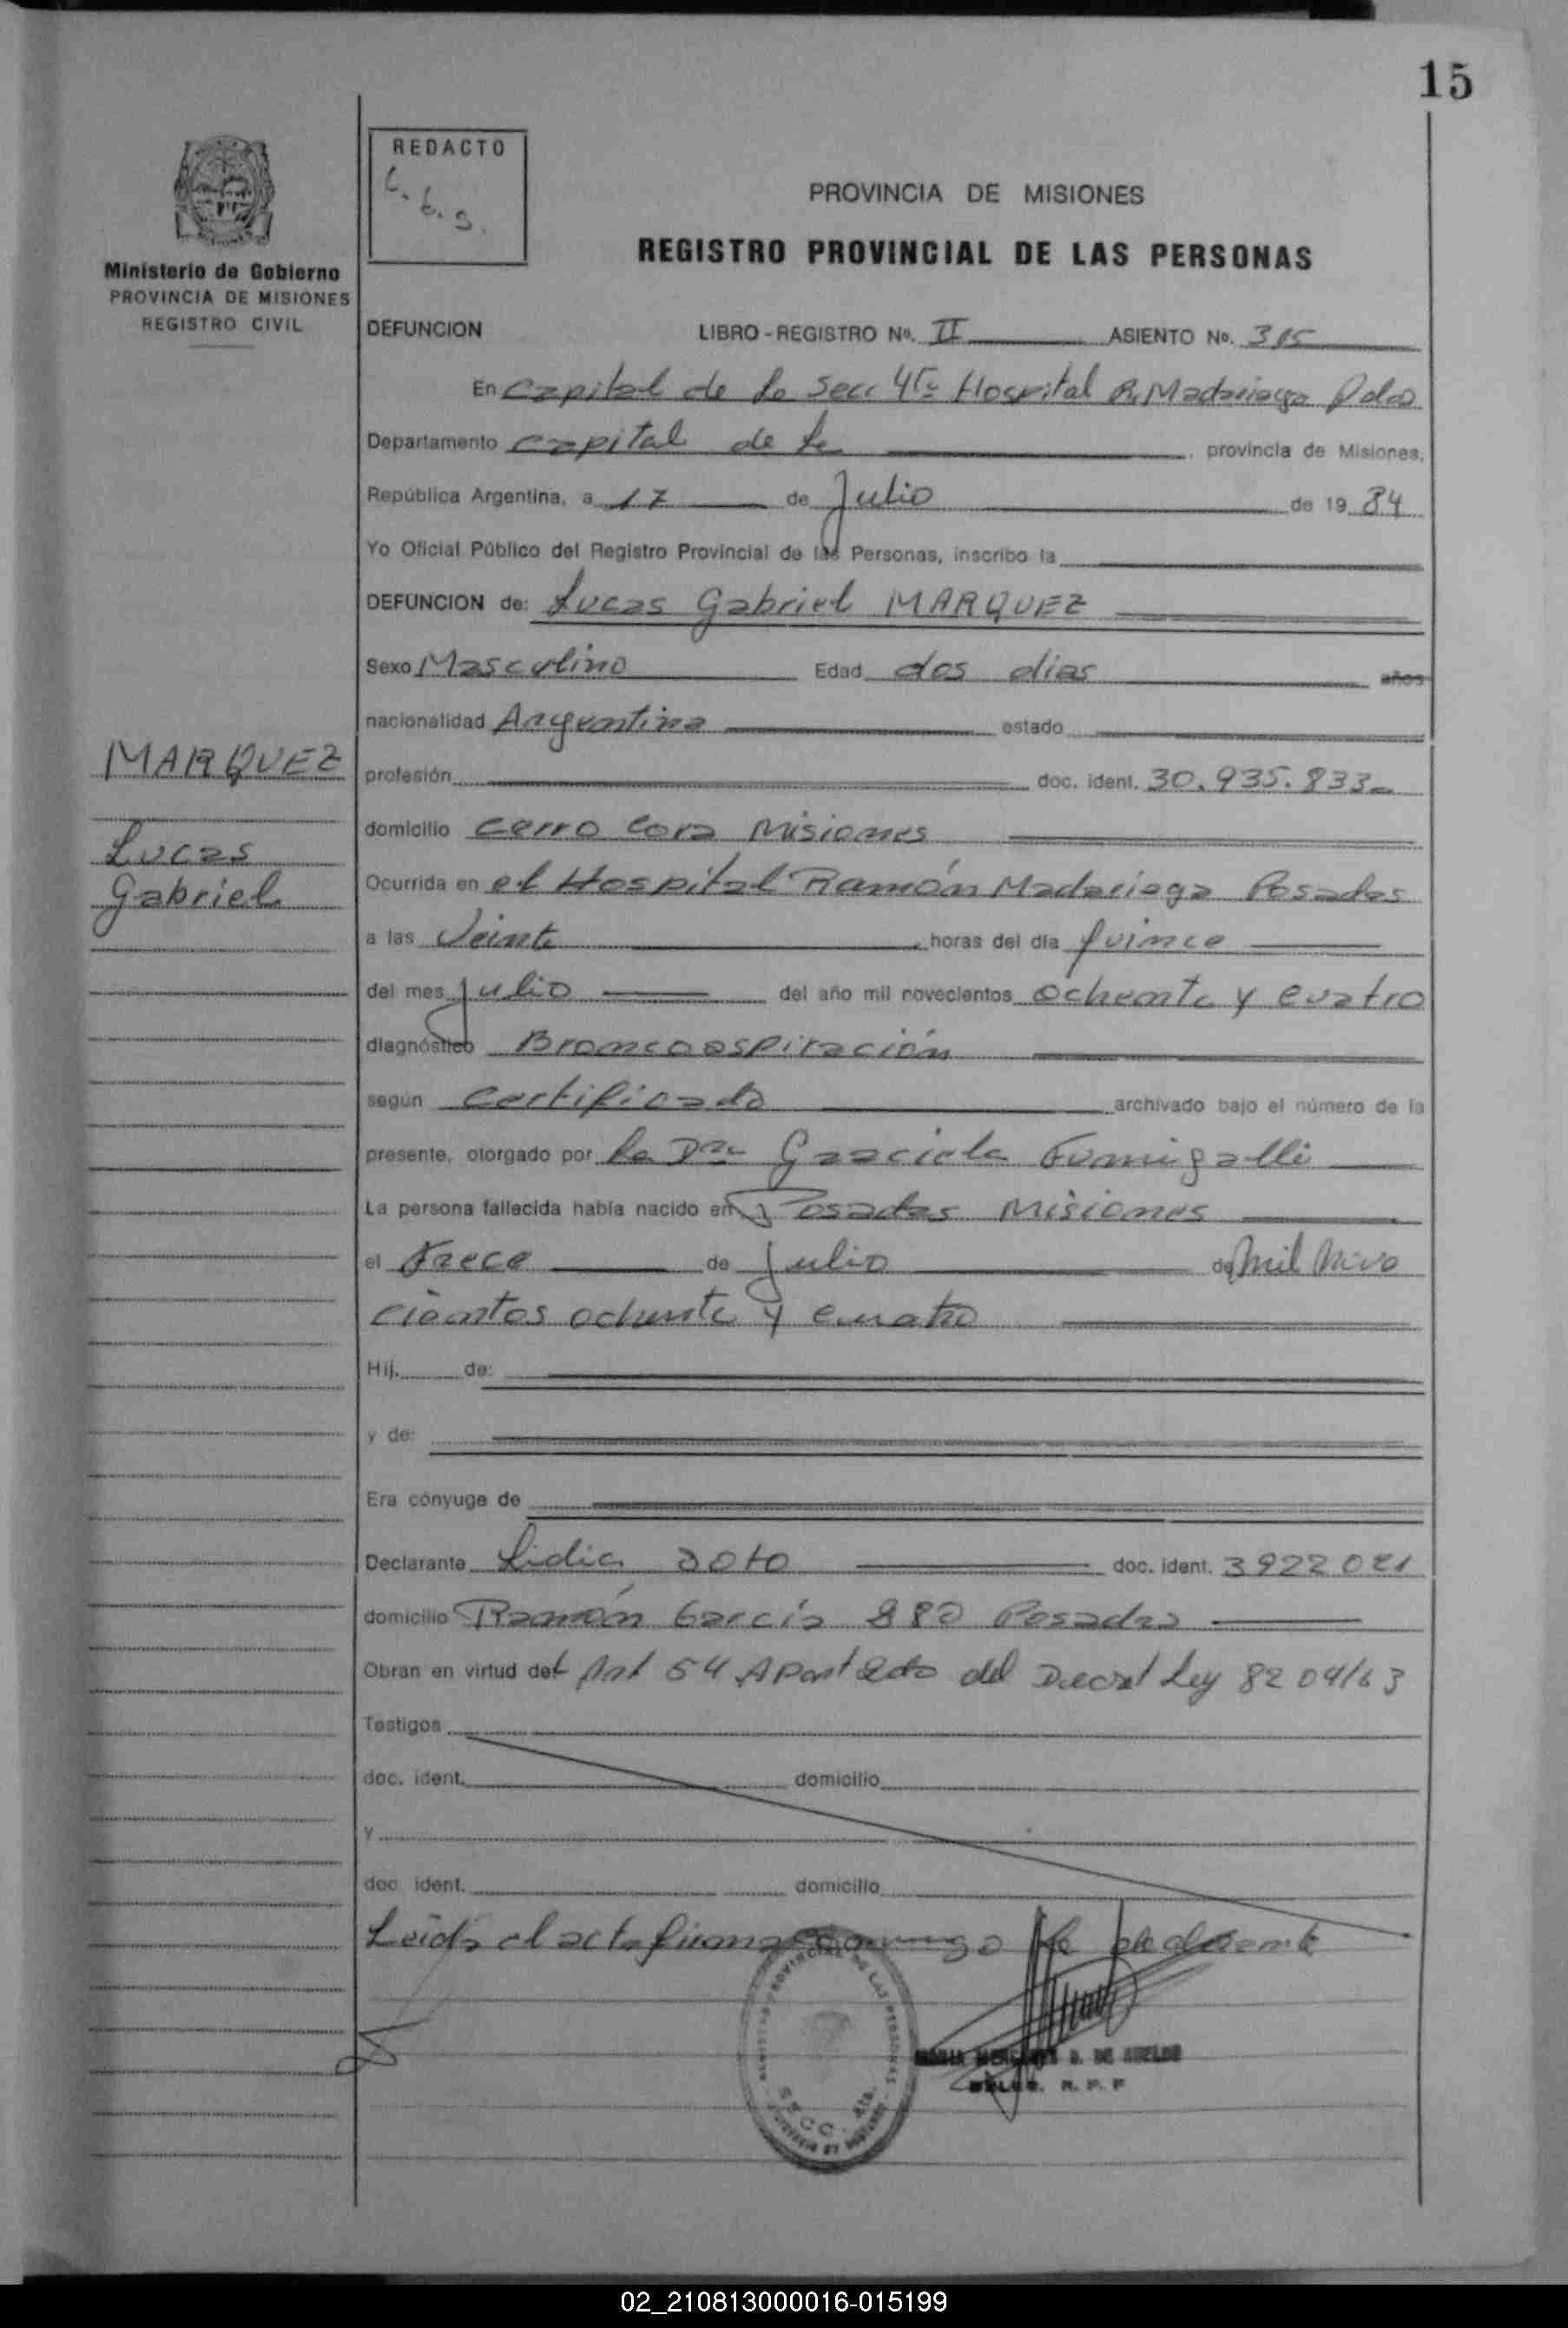 15
REDACTO
C. E. S.
PROVINCIA DE MISIONES
REGISTRO PROVINCIAL DE LAS PERSONAS
Ministerio de Gobierno
PROVINCIA DE MISIONES
REGISTRO CIVIL
DEFUNCION LIBRO - REGISTRO No. II ASIENTO No. 315
En Capital de la Secc 4ta Hospital R. Madariaga Pdas
Departamento Capital de la , provincia de Misiones,
República Argentina, a 17 de Julio de 19 84
Yo Oficial Público del Registro Provincial de las Personas, inscribo la
DEFUNCION de: Lucas Gabriel MARQUEZ
Sexo Masculino Edad dos dias años
nacionalidad Argentina estado
MARQUEZ
Lucas
Gabriel
profesión doc. ident. 30.935.833
domicilio Cerro Cora Misiones
Ocurrida en el Hospital Ramón Madariaga Posadas
a las Veinte , horas del día quince
del mes julio del año mil novecientos ochenta y cuatro
diagnóstico Broncoaspiración
según Certificado archivado bajo el número de la
presente, otorgado por la Dra Graciela Fumigalli
La persona fallecida había nacido en Posadas Misiones
el trece de Julio de mil nove
cientos ochenta y cuatro
Hij. de:
y de:
Era cónyuge de
Declarante Lidia Soto doc. ident. 3922021
domicilio Ramón García 880 Posadas
Obran en virtud del Art 54 Apart 2do del Decret Ley 8204/63
Testigos
doc. ident. domicilio
y
doc ident. domicilio
Leida el acta firma conmigo la declarante
REGISTRO PROVINCIAL DE LAS PERSONAS
SECC. 4ta.
MARIA MERCEDES D. DE
R. P. P
02_210813000016-015199